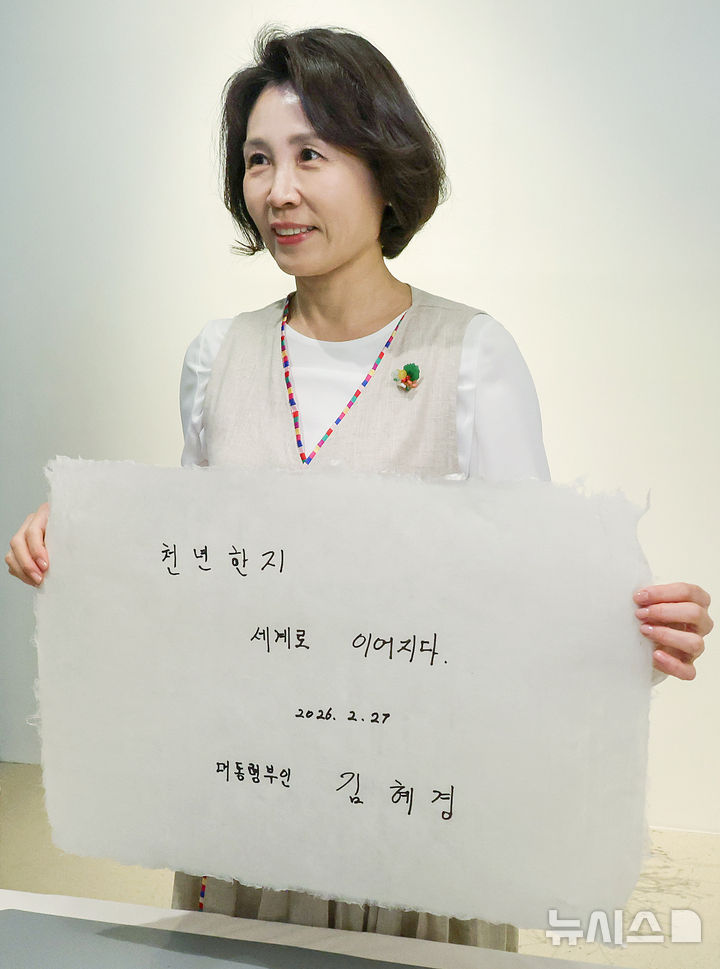 천년한지
세계로 이어지다.
2026. 2. 27
대동령부인 김혜경
뉴시스